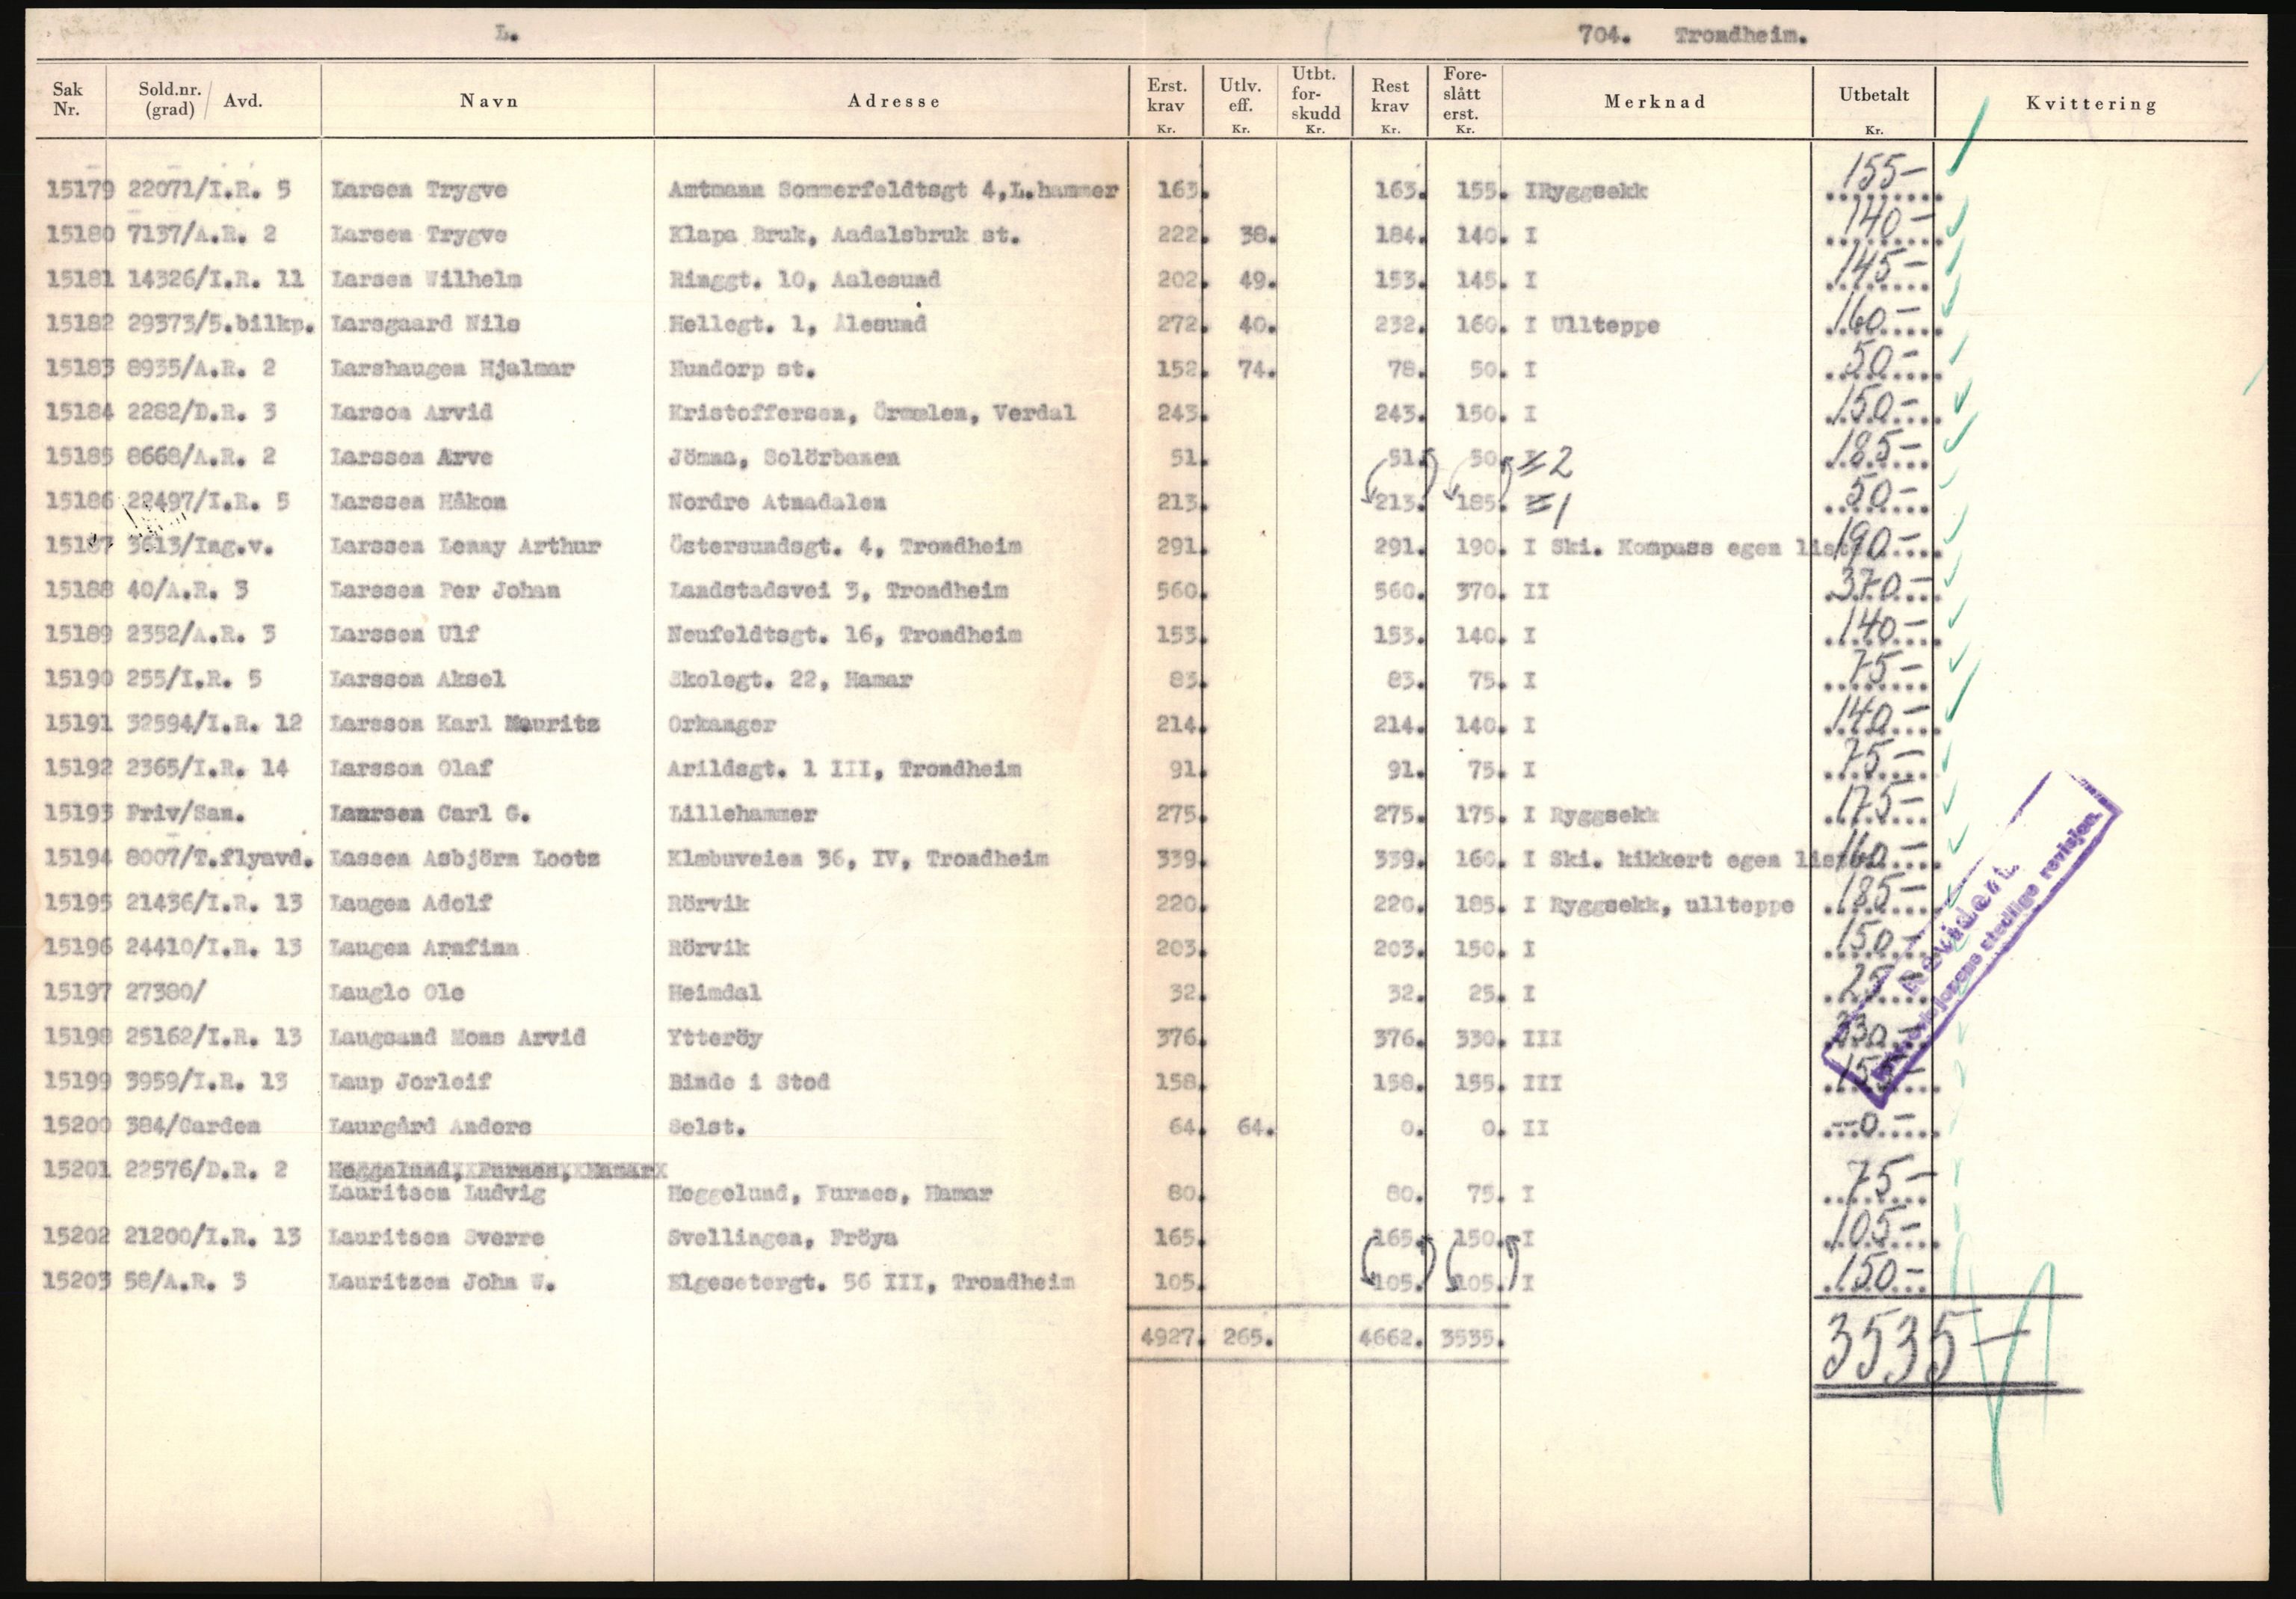 L.
704. Trondheim.
Sak Nr. Sold.nr. (grad) / Avd. Navn Adresse Erst. krav Kr. Utlv. eff. Kr. Utbt. for-skudd Kr. Rest krav Kr. Fore-slått erst. Kr. Merknad Utbetalt Kr. Kvittering
15179 22071/I.R. 5 Larsen Trygve Amtmann Sommerfeldtsgt 4,L.hammer 163. 163. 155. IRyggsekk 155-
15180 7137/A.R. 2 Larsen Trygve Klapa Bruk, Aadalsbruk st. 222. 38. 184. 140. I 140-
15181 14326/I.R. 11 Larsen Wilhelm Ringgt. 10, Aalesund 202. 49. 153. 145. I 145-
15182 29373/5.bilkp. Larsgaard Nils Hellegt. 1, Ålesund 272. 40. 232. 160. I Ullteppe 160-
15183 8935/A.R. 2 Larshaugen Hjalmar Hundorp st. 152. 74. 78. 50. I 50-
15184 2282/D.R. 3 Larson Arvid Kristoffersen, Örmelen, Verdal 243. 243. 150. I 150-
15185 8668/A.R. 2 Larssen Arve Jömna, Solörbanen 51. 51. 50. I 2 185-
15186 22497/I.R. 5 Larssen Håkon Nordre Atnadalen 213. 213. 185. I 1 50-
15187 3613/Ing.v. Larssen Lenny Arthur Östersundsgt. 4, Trondheim 291. 291. 190. I Ski. Kompass egen liste 190-
15188 40/A.R. 3 Larssen Per Johan Landstadsvei 3, Trondheim 560. 560. 370. II 370-
15189 2352/A.R. 3 Larssen Ulf Neufeldtsgt. 16, Trondheim 153. 153. 140. I 140-
15190 255/I.R. 5 Larsson Aksel Skolegt. 22, Hamar 83. 83. 75. I 75-
15191 32594/I.R. 12 Larsson Karl Mauritz Orkanger 214. 214. 140. I 140-
15192 2365/I.R. 14 Larsson Olaf Arildsgt. 1 III, Trondheim 91. 91. 75. I 75-
15193 Friv/San. Laursen Carl G. Lillehammer 275. 275. 175. I Ryggsekk 175-
15194 8007/T.flyavd. Lassen Asbjörn Lootz Klæbuveien 36, IV, Trondheim 339. 339. 160. I Ski. kikkert egen liste 160-
15195 21436/I.R. 13 Laugen Adolf Rörvik 220. 220. 185. I Ryggsekk, ullteppe 185-
15196 24410/I.R. 13 Laugen Arnfinn Rörvik 203. 203. 150. I 150-
15197 27380/ Lauglo Ole Heimdal 32. 32. 25. I 25-
15198 25162/I.R. 13 Laugsand Mons Arvid Ytteröy 376. 376. 330. III 330-
15199 3959/I.R. 13 Laup Jorleif Binde i Stod 158. 158. 155. III 155-
15200 384/Garden Laurgård Anders Selst. 64. 64. 0. 0. II -0-
15201 22576/D.R. 2 Heggelund, Furnes, Hamar
Lauritsen Ludvig Heggelund, Furnes, Hamar 80. 80. 75. I 75-
15202 21200/I.R. 13 Lauritsen Sverre Svellingen, Fröya 165. 165. 150. I 105-
15203 58/A.R. 3 Lauritzen John W. Elgesetergt. 56 III, Trondheim 105. 105. 105. I 150-
4927. 265. 4662. 3535. 3535-
Revidert.
stedlige revisjon.